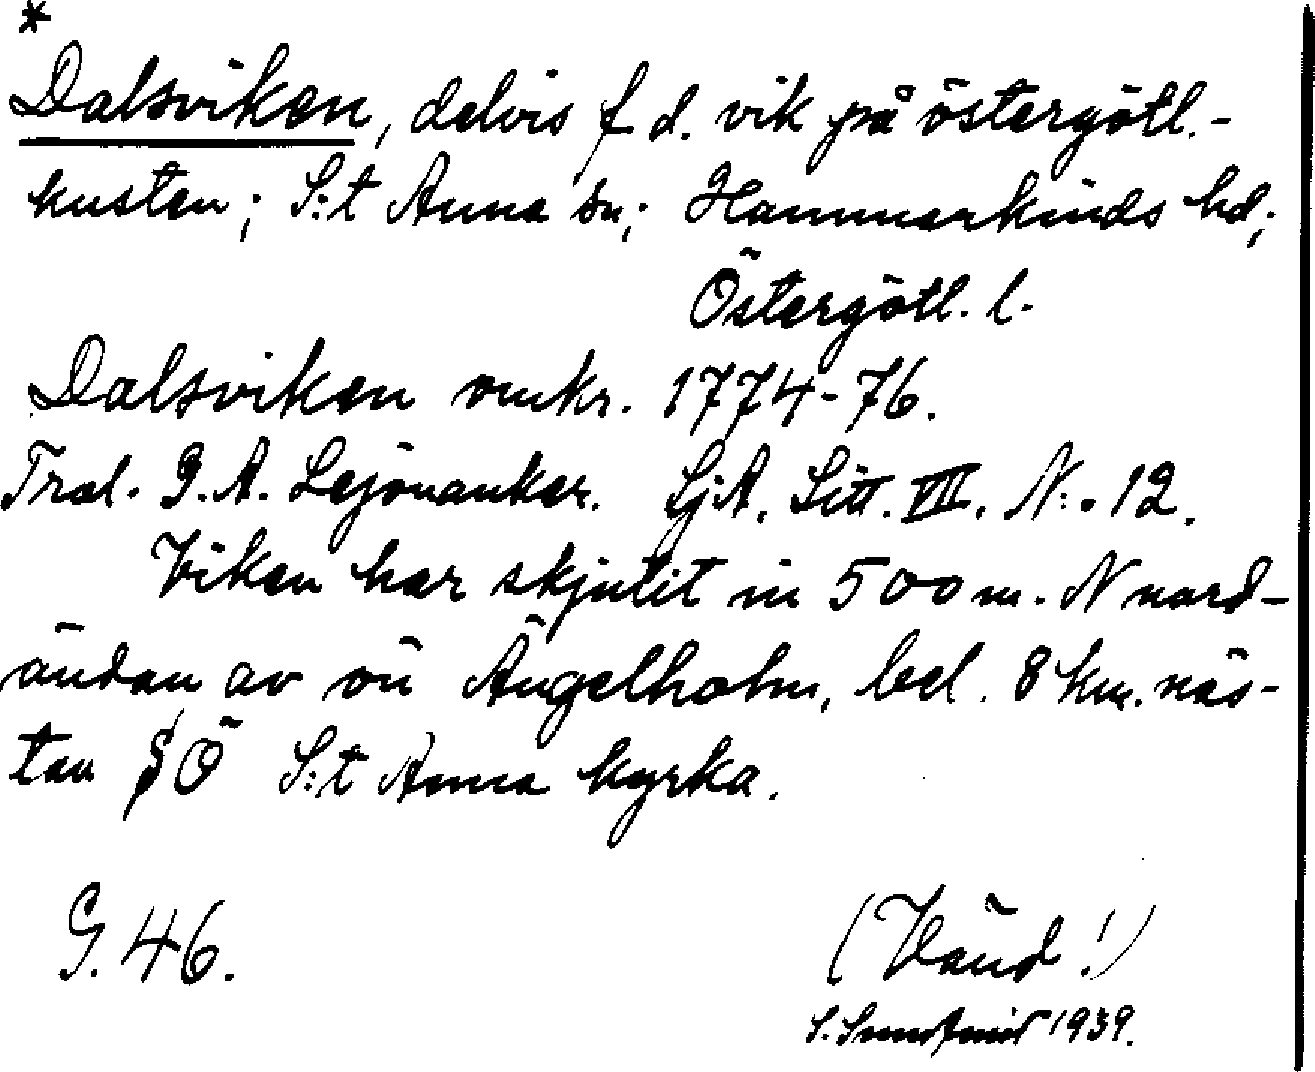 *
Dalsviken, delvis f d. vik på östergötl.-
kusten; S:t Anna sn; Hammarkinds hd;
Östergötl. l.
Dalsviken omkr. 1774-76.
Tral. G. A. Lejonanker. Lj.A. Litt. VIII. N:o 12.
Viken har skjutit in 500 m. N nord-
ändan av ön Ängelholm, bel. 8 km. näs-
tan S Ö S:t Anna kyrka.
G. 46.
(Vänd!)
1939.